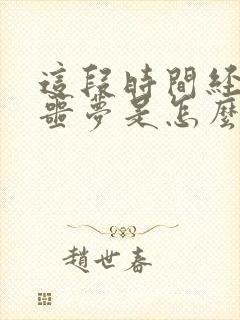 這段時間經
噩夢是怎麼
趙世春